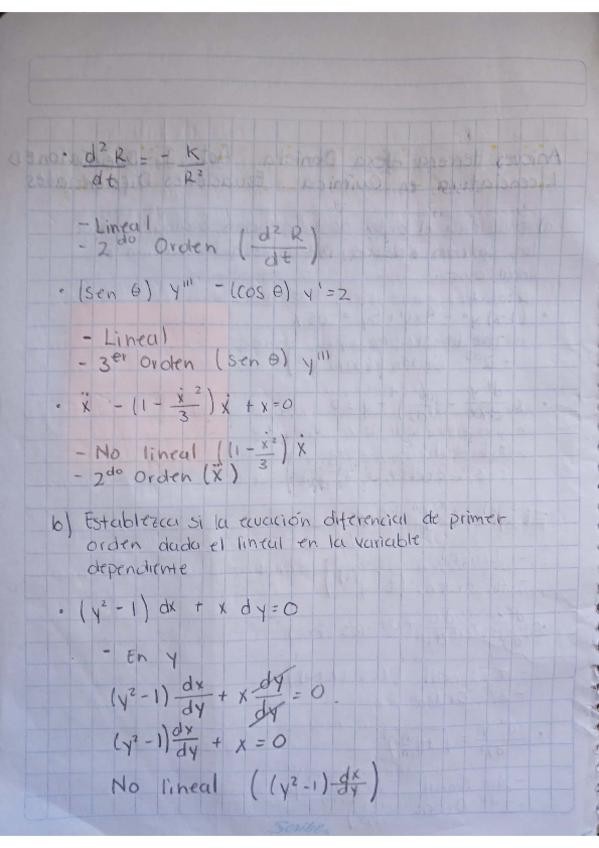 · d² R / dt = - K / R²
- Lineal
- 2do Orden (d² R / dt)
· (sen θ) y''' - (cos θ) y' = 2
- Lineal
- 3er Orden (sen θ) y'''
· ẍ - (1 - ẋ² / 3) ẋ + x = 0
- No lineal ((1 - ẋ² / 3) ẋ
- 2do Orden (ẍ)
b) Establezca si la ecuación diferencial de primer
orden dada el lineal en la variable
dependiente
· (y² - 1) dx + x dy = 0
- En y
(y² - 1) dx/dy + x dy/dy = 0.
(y² - 1) dx/dy + x = 0
No lineal ((y² - 1) dx/dy)
Scribe